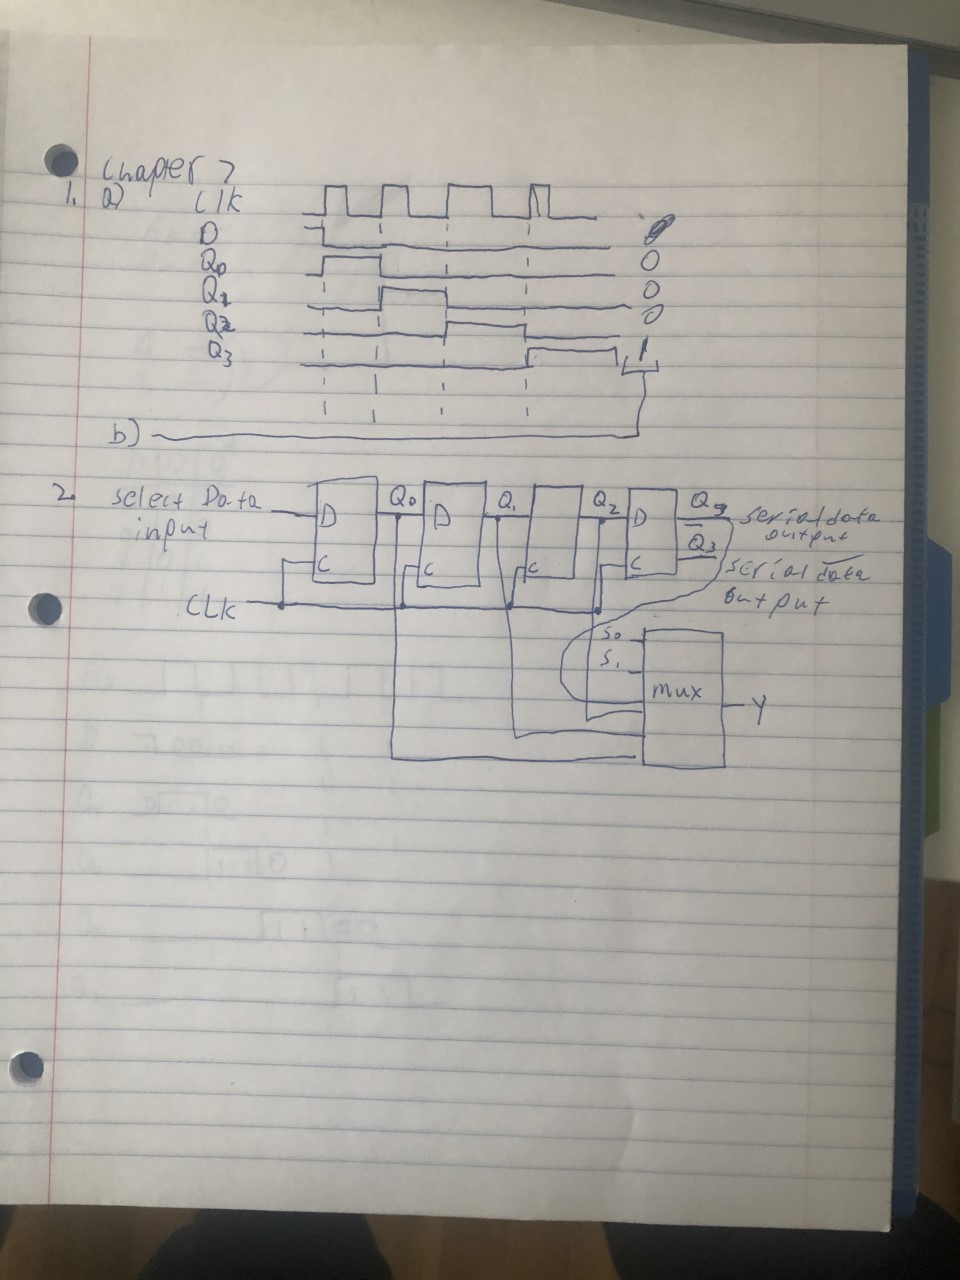 Chapter 7
1. a) Clk
D
Q0 0
Q1 0
Q2 0
Q3 1
b)
2. select Data input
D Q0 D Q1 Q2 D Q3 serial data output
Q̅3 serial d̅a̅t̅a̅ output
C C C C
CLK
S0
S1
mux Y